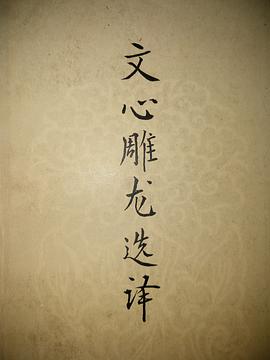 文心雕龙选译